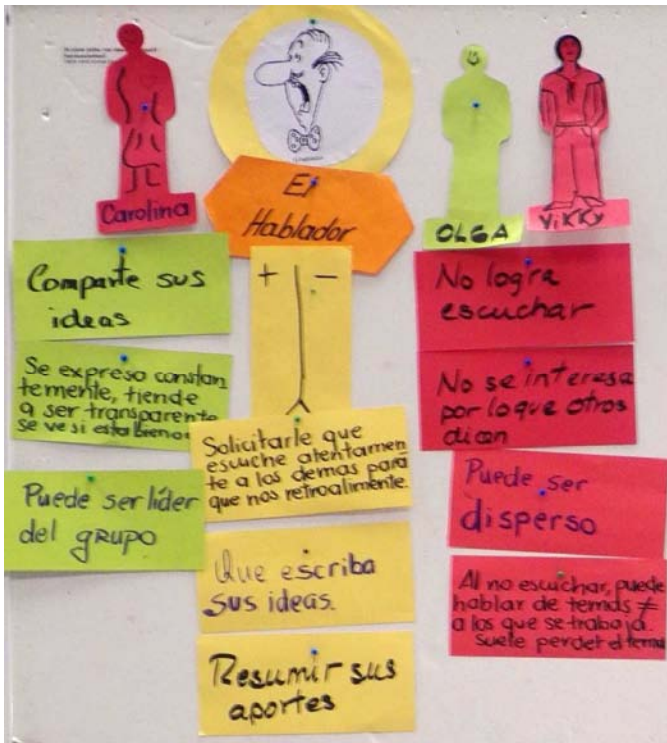 Carolina
El
Hablador
OLGA
VIKKY
+ −
Comparte sus
ideas
Se expresa constan
temente, tiende
a ser transparente
se ve si esta bien o
Puede ser líder
del grupo
Solicitarle que
escuche atentamen
te a los demas para
que nos retroalimente.
Que escriba
sus ideas.
Resumir sus
aportes
No logra
escuchar
No se interesa
por lo que otros
dicen
Puede ser
disperso
Al no escuchar, puede
hablar de temas ≠
a los que se trabaja.
Suele perder el tema